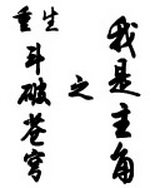 重生
斗破苍穹
之
我是主角